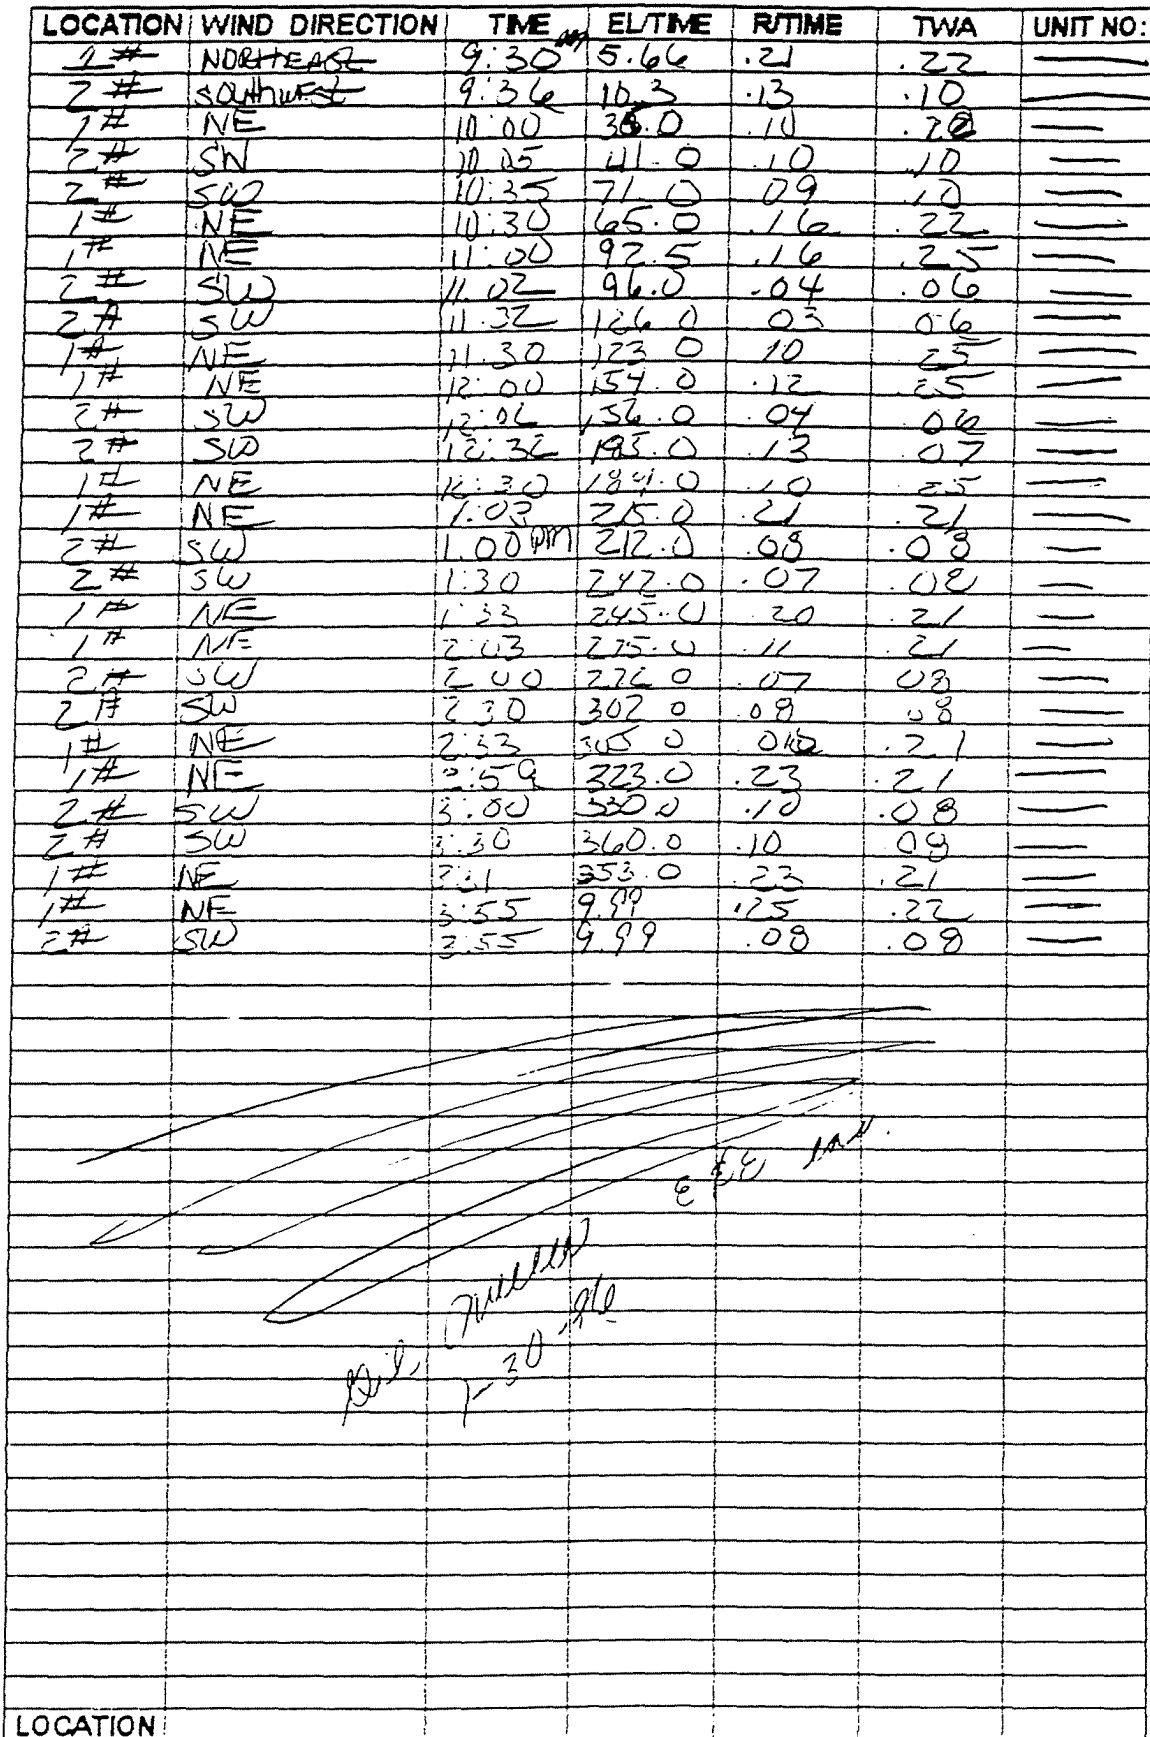 LOCATION WIND DIRECTION TIME EL/TIME R/TIME TWA UNIT NO:
1# NORTHEAST 9:30 am 5.66 .21 .22 —
2# SOUTHWEST 9:36 10.3 .13 .10 —
1# NE 10:00 36.0 .10 —
2# SW 10:05 41.0 .10 .10 —
2# SW 10:35 71.0 09 .10 —
1# NE 10:30 65.0 .16 .22 —
1# NE 11:00 92.5 .16 .25 —
2# SW 11:02 96.0 .04 .06 —
2# SW 11:32 126.0 03 06 —
1# NE 11:30 123.0 10 25 —
1# NE 12:00 154.0 .12 25 —
2# SW 12:02 156.0 .04 .06 —
2# SW 12:32 185.0 .13 .07 —
1# NE 12:30 184.0 .10 25 —
1# NE 1:03 215.0 .21 .21 —
2# SW 1:00 PM 212.0 .08 .08 —
2# SW 1:30 242.0 .07 .08 —
1# NE 1:33 245.0 .20 .21 —
1# NE 2:03 275.0 .11 .21 —
2# SW 2:00 272.0 .07 08 —
2# SW 2:30 302.0 .08 08 —
1# NE 2:33 305.0 .21 —
1# NE 2:59 323.0 .23 .21 —
2# SW 3:00 330.0 .10 .08 —
2# SW 3:30 360.0 .10 08 —
1# NE 3:31 353.0 .23 .21 —
1# NE 3:55 9.99 .25 .22 —
2# SW 3:55 9.99 .08 .08 —
LOCATION